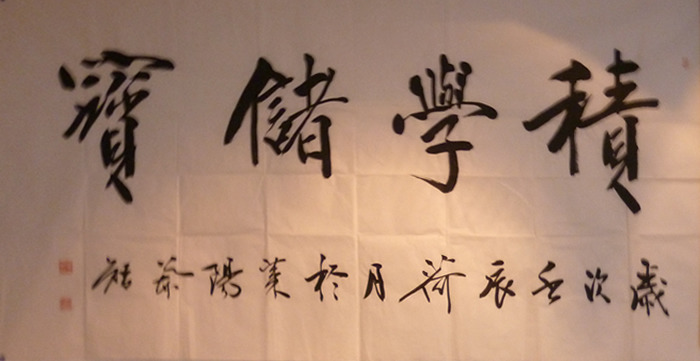 積學儲寶
歲次壬辰荷月於陽